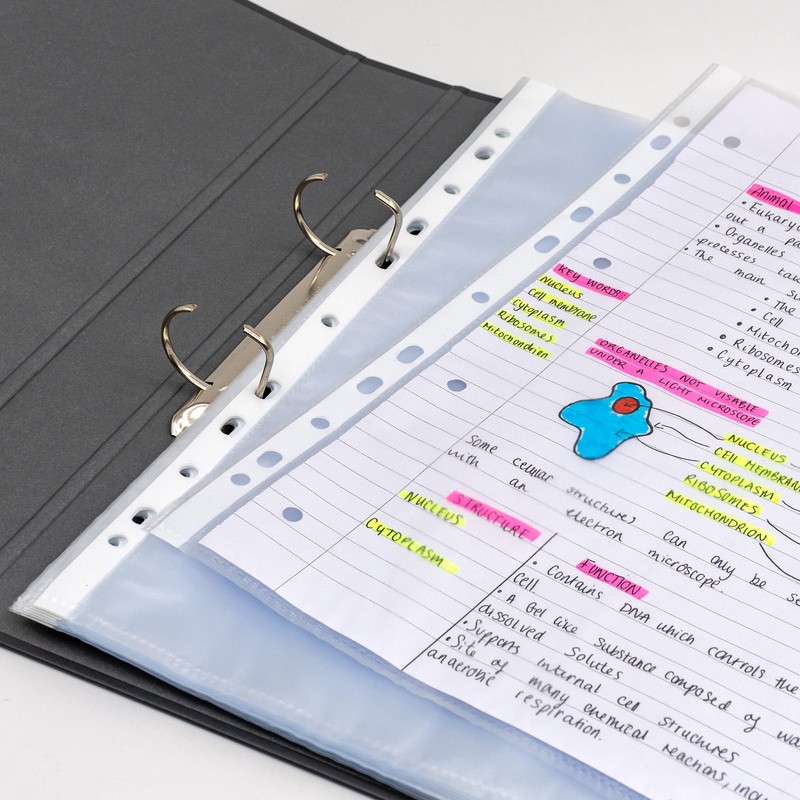 ANIMAL
• Eukaryo
out a pa
• Organelles
processes tak
• The main su
• The
• Cell
• Mitochon
• Ribosomes
• Cytoplasm
KEY WORDS
NUCLEUS
Cell membrane
Cytoplasm
Ribosomes
Mitochondrion
ORGANELLES NOT VISABLE
UNDER A LIGHT MICROSCOPE
NUCLEUS
CELL MEMBRAN
CYTOPLASM
RIBOSOMES
MITOCHONDRION
Some celular structures can only be se
with an electron microscope.
STRUCTURE
FUNCTION
NUCLEUS
• Contains DNA which controls the
cell.
CYTOPLASM
• A Gel like substance composed of wa
dissolved solutes
• Supports internal cell structures
• Site of many chemical reactions, inclu
anaerobic respiration.